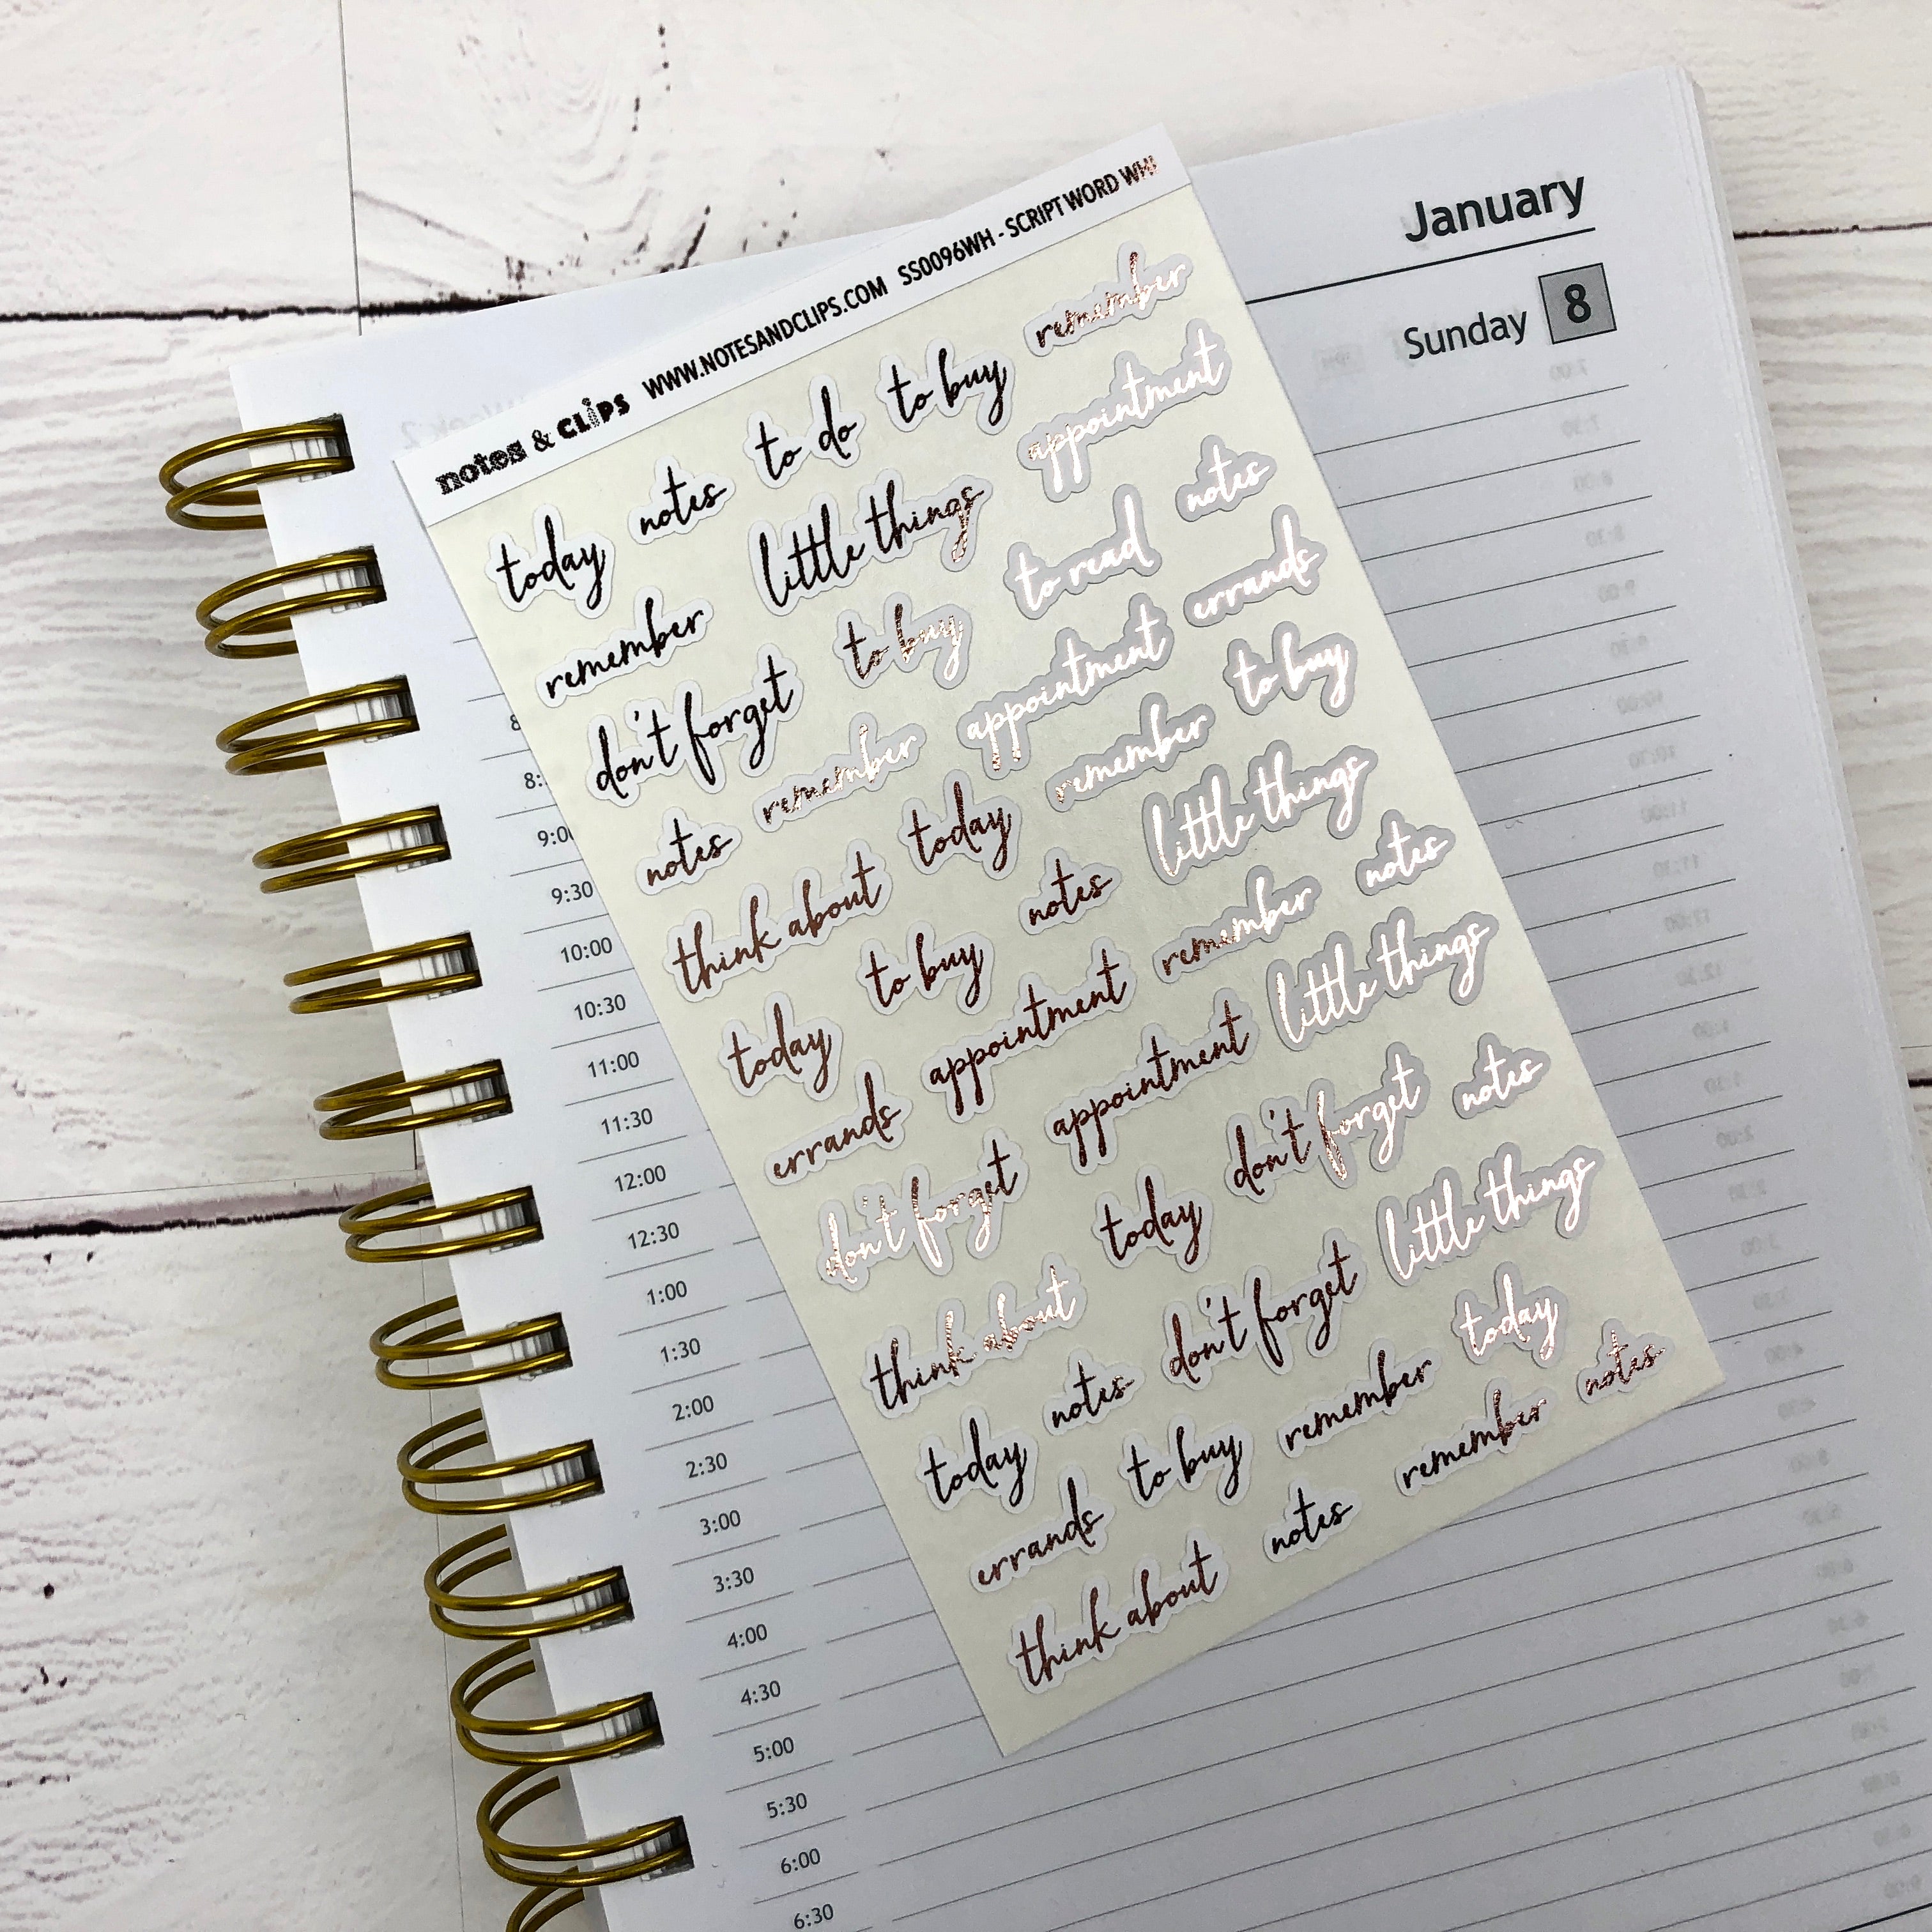 January
Sunday 8
notes & CLiPS WWW.NOTESANDCLIPS.COM SS0096WH - SCRIPT WORD WHI
today notes to do to buy remember
remember little things appointment
don't forget to buy to read notes
notes remember appointment errands
think about today remember to buy
today to buy notes little things
errands appointment remember notes
don't forget appointment little things
think about today don't forget notes
today notes don't forget little things
errands to buy remember today
think about notes remember notes
8:
9:00
9:30
10:00
10:30
11:00
11:30
12:00
12:30
1:00
1:30
2:00
2:30
3:00
3:30
4:00
4:30
5:00
5:30
6:00
6:30